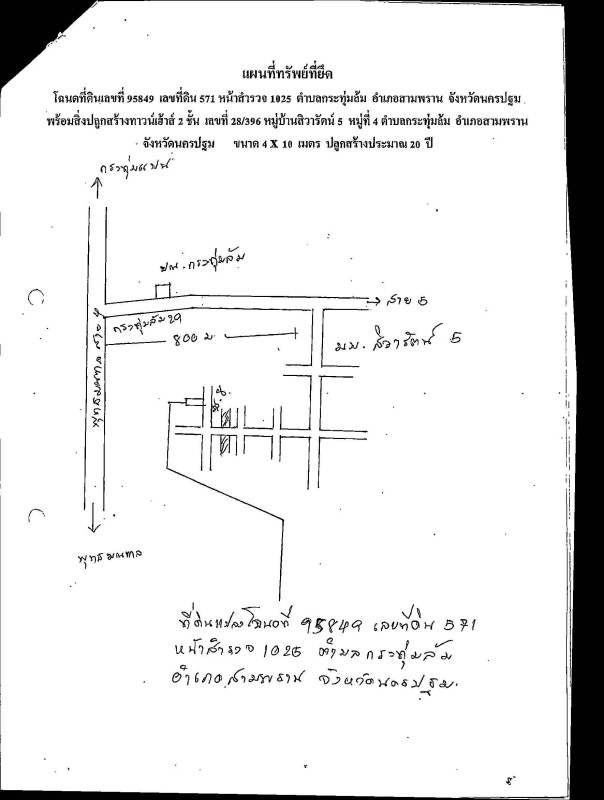 แผนที่ทรัพย์ที่ยึด
โฉนดที่ดินเลขที่ 95849 เลขที่ดิน 571 หน้าสำรวจ 1025 ตำบลกระทุ่มล้ม อำเภอสามพราน จังหวัดนครปฐม
พร้อมสิ่งปลูกสร้างทาวน์เฮ้าส์ 2 ชั้น เลขที่ 28/396 หมู่บ้านสิวารัตน์ 5 หมู่ที่ 4 ตำบลกระทุ่มล้ม อำเภอสามพราน
จังหวัดนครปฐม ขนาด 4 X 10 เมตร ปลูกสร้างประมาณ 20 ปี
กระทุ่มแบน
กระทุ่มล้ม
สาย 5
กระทุ่มล้ม 29
800 ม.
มบ. สิวารัตน์ 5
พุทธมณฑล สาย 4
พุทธมณฑล
ที่ดินแปลงโฉนดที่ 95849 เลขที่ดิน 571
หน้าสำรวจ 1025 ตำบลกระทุ่มล้ม
อำเภอสามพราน จังหวัดนครปฐม.